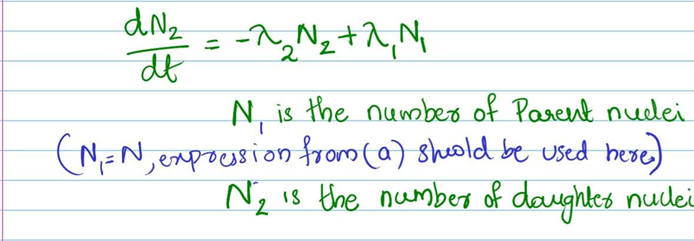 dN₂/dt = -λ₂N₂ + λ₁N₁
N₁ is the number of Parent nuclei
(N₁=N, expression from (a) should be used here)
N₂ is the number of daughter nuclei